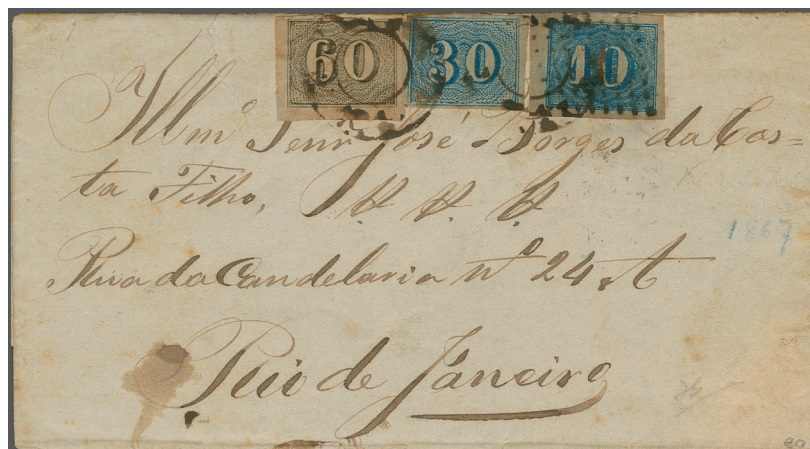 60 30 10
Illmº Senr José Borges da Cos=
ta Filho,
1867
Rua da Candelaria nº 24 A
Rio de Janeiro